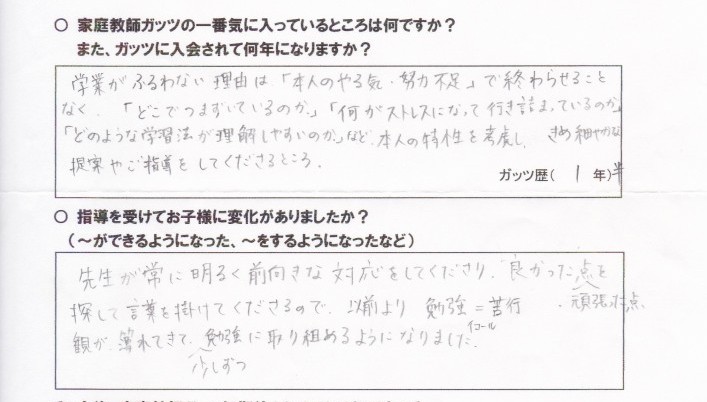 ○ 家庭教師ガッツの一番気に入っているところは何ですか？
また、ガッツに入会されて何年になりますか？
学業がふるわない理由は「本人のやる気・努力不足」で終わらせること
なく、「どこでつまずいているのか」「何がストレスになって行き詰まっているのか」
「どのような学習法が理解しやすいのか」など、本人の特性を考慮し、きめ細やかな
提案やご指導をしてくださるところ。
ガッツ歴（ 1 年）半
○ 指導を受けてお子様に変化がありましたか？
（～ができるようになった、～をするようになったなど）
先生が常に明るく前向きな対応をしてくださり、良かった点を
・頑張った点、
探して言葉を掛けてくださるので、以前より 勉強＝苦行
イコール
観が薄れてきて、勉強に取り組めるようになりました。
少しずつ